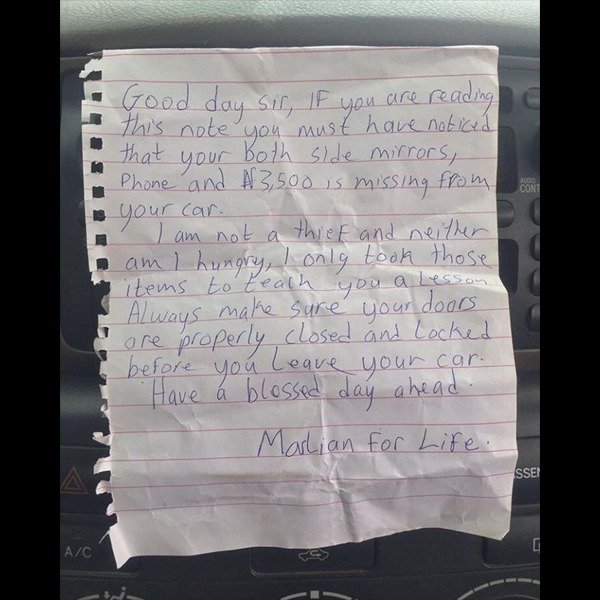 Good day sir, IF you are reading
this note you must have noticed
that your both side mirrors,
Phone and ₦3,500 is missing from
your car.
I am not a thief and neither
am I hungry, I only took those
items to teach you a lesson
Always make sure your doors
are properly closed and Locked
before you Leave your car.
Have a blossed day ahead.
Marlian For Life.
AUDIO
CONT
A/C
SSEN